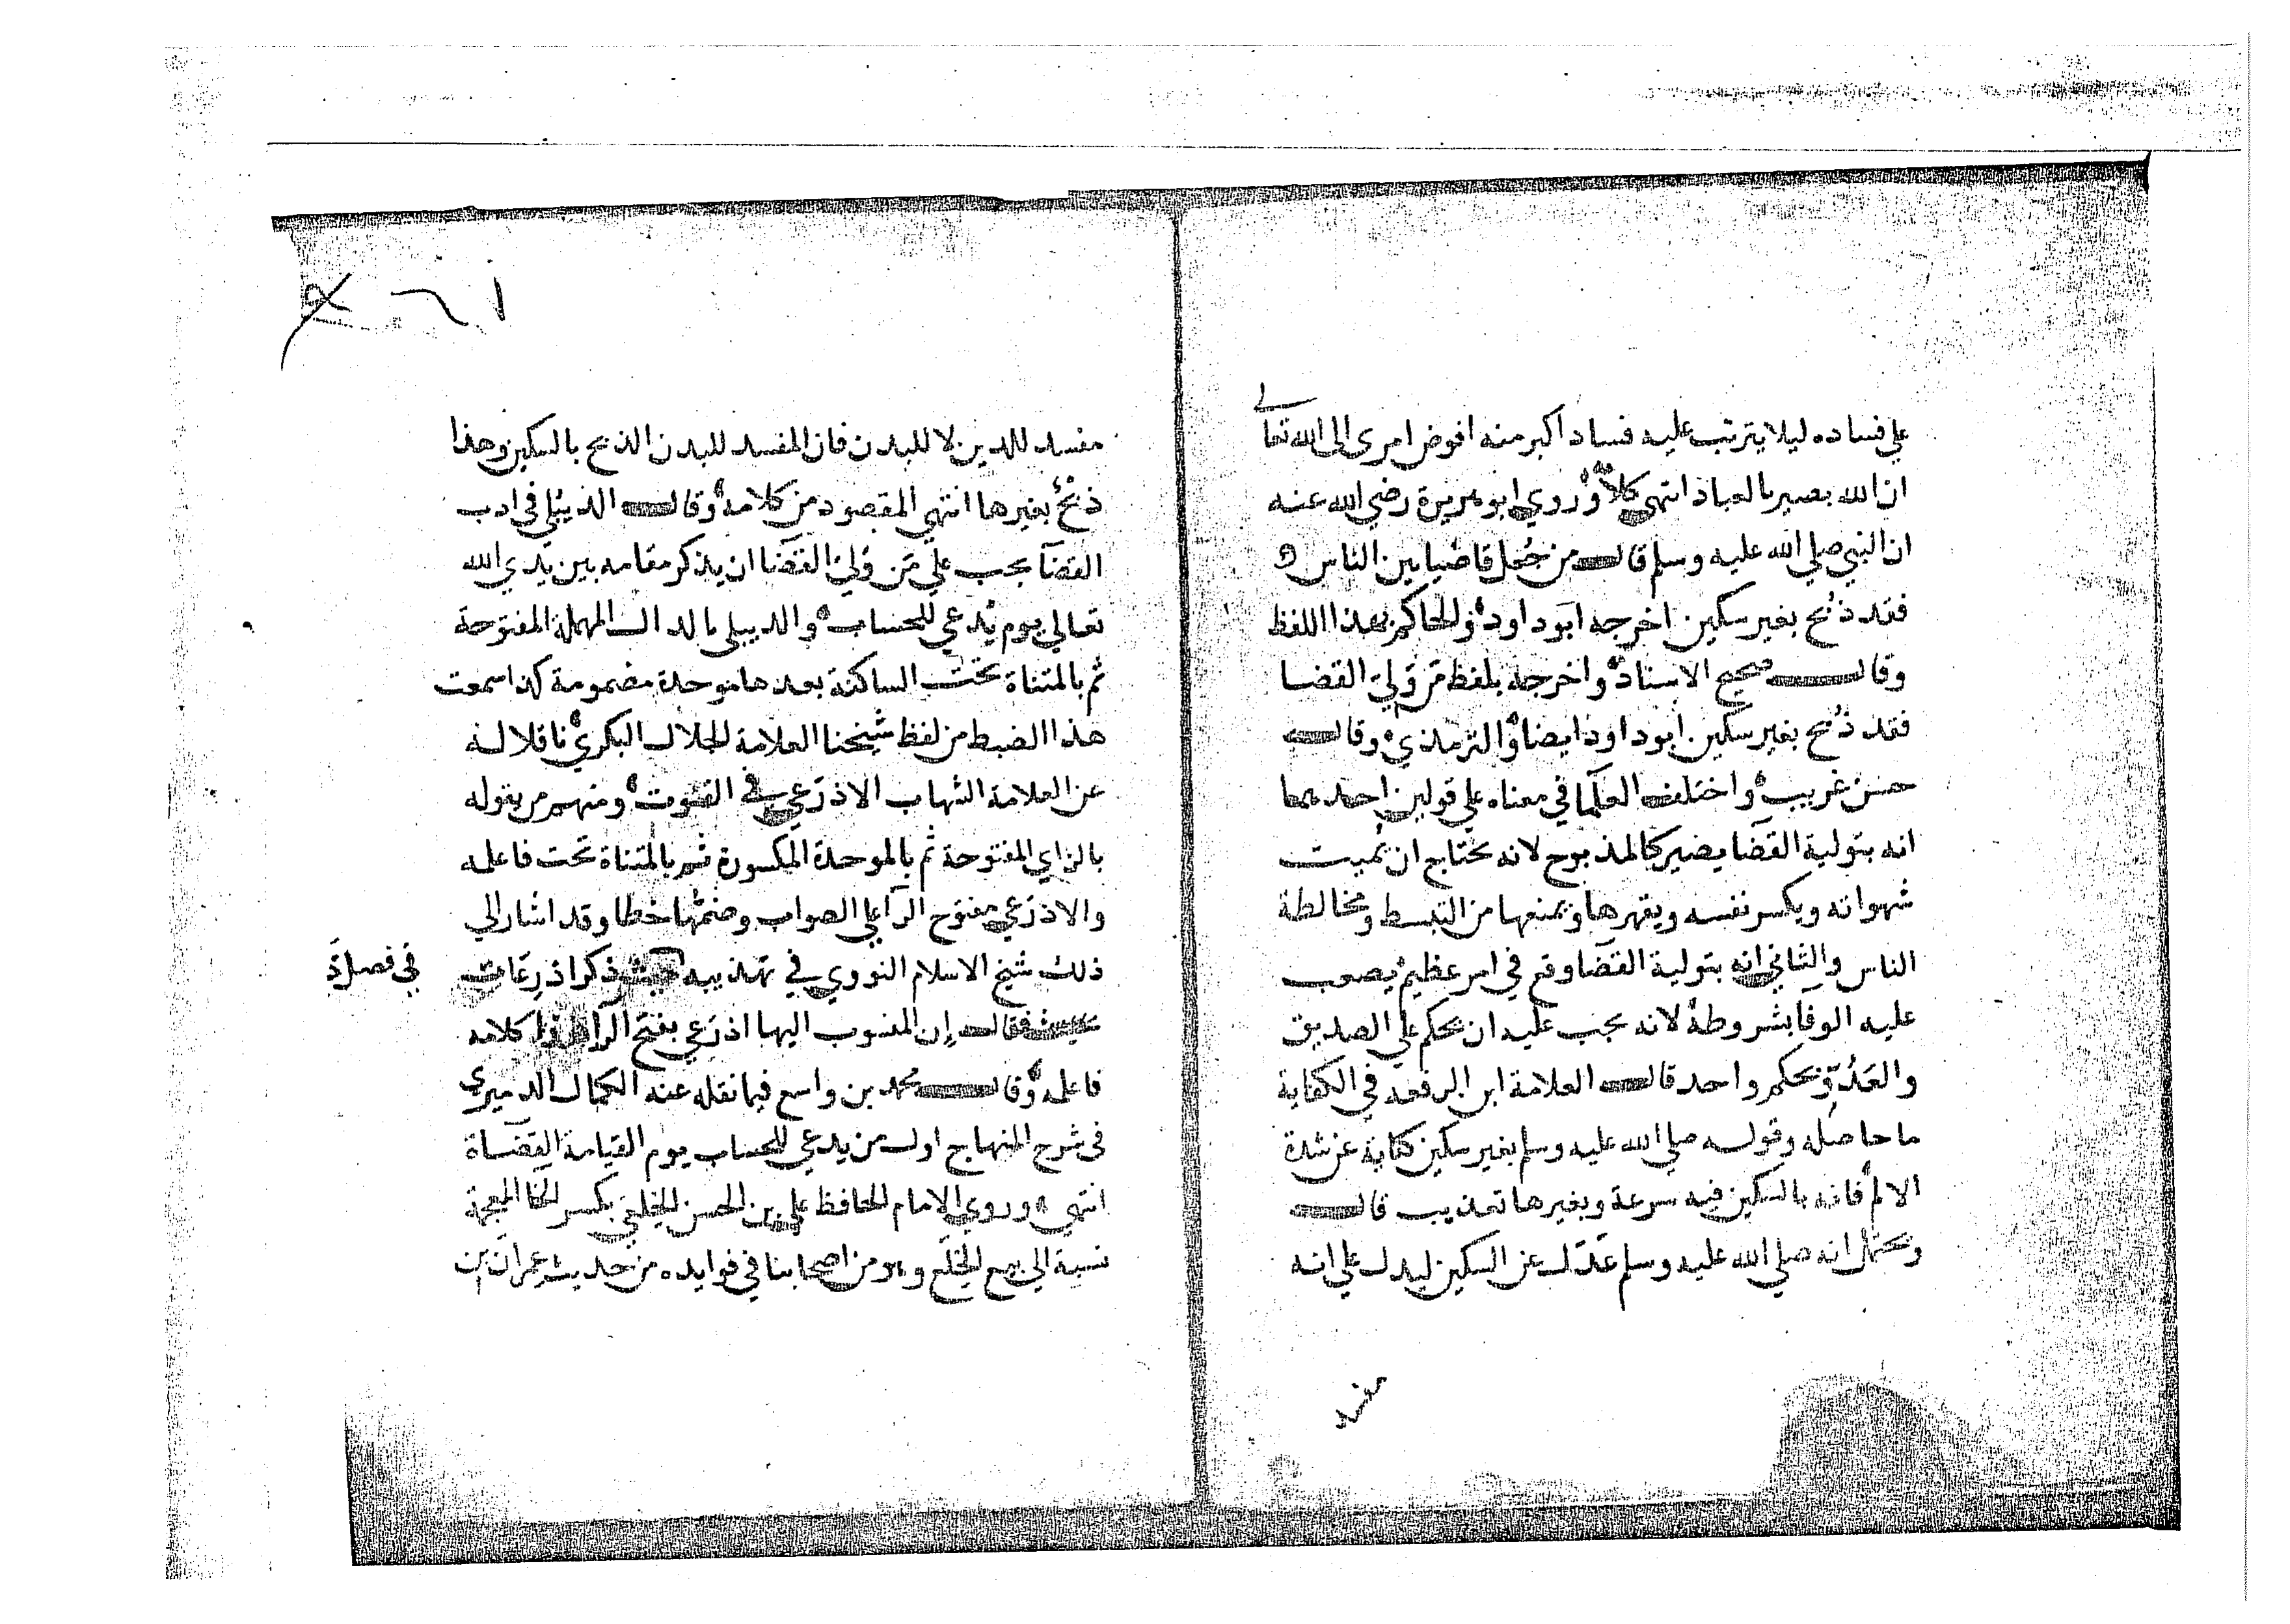 على فساده ليلا يترتب عليه فساد اكبر منه افوض امرى الى الله تعالى
ان الله بصير بالعباد انتهى كلامه وروي ابو هريرة رضي الله عنه
ان النبي صلي الله عليه وسلم قال من جُعل قاضيا بين الناس
فقد ذُبح بغير سكين اخرجه ابود اود والحاكم بهذا اللفظ
وقال صحيح الاسناد واخرجه بلفظ مَن وَلِيَ القضا
فقد ذُبح بغير سكين ابود اود ايضا والترمذي وقال
حسن غريب واختلف العلما في معناه علي قولين احدهما
انه بتولية القضا يصير كالمذبوح لانه يحتاج ان يُميت
شهواته ويكسر نفسه ويقهرها ويمنعها من التبسط ومخالطة
الناس والثاني انه بتولية القضا وقع في امر عظيم يصعب
عليه الوفا بشروطه لانه يجب عليه ان يحكم علي الصديق
والعَدُوّ بحكم واحد قال العلامة ابن الرفعه في الكفاية
ما حاصله وقوله صلي الله عليه وسلم بغير سكين كناية عن شدة
الالم فانه بالسكين فيه سرعة وبغيرها تعذيب قال
ويحتمل انه صلي الله عليه وسلم عَدَل عن السكين ليدل علي انه
مفسد
مفسد للدين لا للبدن فان المفسد للبدن الذبح بالسكين وهذا
ذبحٌ بغيرها انتهي المقصود من كلامه وقال الديبُلي في ادب
القضا يجب علي مَن وَلِيَ القضا ان يذكر مقامه بين يدي الله
تعالي يوم يُدعي للحساب والديبلي بالدال المهملة المفتوحة
ثم بالمثناة تحت الساكنة بعدها موحدة مضمومة كذا سمعت
هذا الضبط من لفظ شيخنا العلامة الجلال البكري ناقلا له
عن العلامة الشهاب الاذرَعي في القوت ومنهم من يقوله
بالزاي المفتوحة ثم بالموحدة المكسورة ثم بالمثناة تحت فاعلمه
والاذرَعي مفتوح الرا علي الصواب وضمها خطا وقد اشار الي
ذلك شيخ الاسلام النووي في تهذيبه حيث ذكر اذرِعَات
في فصل
فقال إن المنسوب اليها اذرَعي بفتح الرا كلامه
فاعلمه وقال محمد بن واسع فيما نقله عنه الكمال الدميري
فى شرح المنهاج اول من يدعي للحساب يوم القيامة القضاة
انتهي وروي الامام الحافظ علي بن الحسن الخِلَعي بكسر الخا المعجمة
نسبة الي بيع الخِلَع وهو من اصحابنا في فوايده من حديث عِمرَان بن